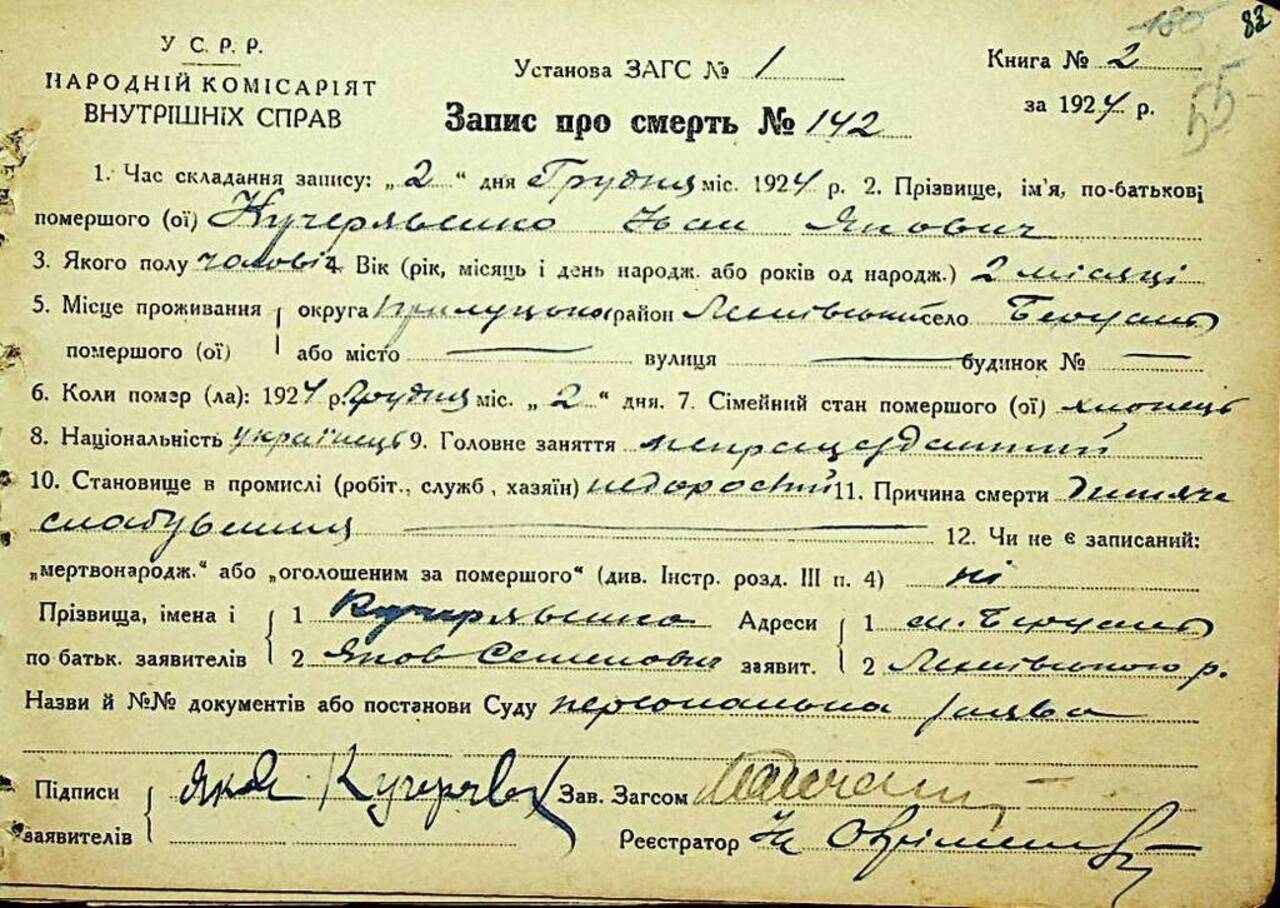 180 83
У С. Р. Р.
НАРОДНІЙ КОМІСАРІЯТ
ВНУТРІШНІХ СПРАВ
Установа ЗАГС № 1
Книга № 2
за 1924 р.
55
Запис про смерть № 142
1. Час складання запису: „2“ дня Грудня міс. 1924 р. 2. Прізвище, ім'я, по-батькові
помершого (ої) Кучерявенко Іван Якович
3. Якого полу чоловіч 4. Вік (рік, місяць і день народж. або років од народж.) 2 місяці
5. Місце проживання округа Прилуцька район село
помершого (ої) або місто — вулиця — будинок № —
6. Коли помер (ла): 1924 р. Грудня міс. „2“ дня. 7. Сімейний стан помершого (ої) хлопець
8. Національність українець 9. Головне заняття
10. Становище в промислі (робіт., служб., хазяїн) 11. Причина смерти дитяче
12. Чи не є записаний:
„мертвонародж.“ або „оголошеним за помершого“ (див. Інстр. розд. III п. 4) ні
Прізвища, імена і 1 Кучерявенко Адреси 1
по батьк. заявителів 2 Яков Семенович заявит. 2 р.
Назви й №№ документів або постанови Суду персональна заява
Підписи Зав. Загсом
заявителів Реєстратор